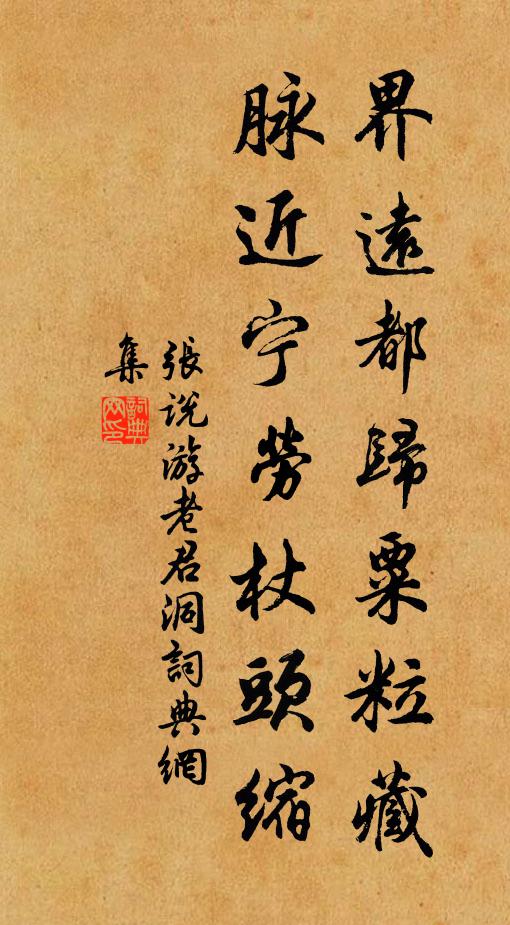 界遠都歸粟粒藏
脉近宁勞杖頭縮
張说游老君洞詞典網
集
詞典网印